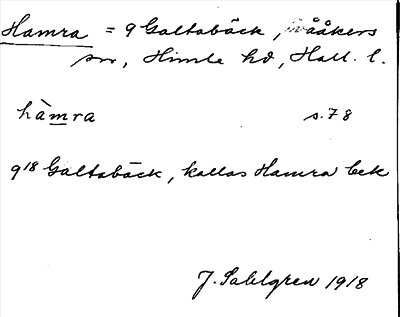 Hamra = 9 Galtabäck, Tvååkers
sn, Himle hd, Hall. l.
hàmra s. 78
9¹⁸ Galtabäck, kallas Hamra bek
J. Sahlgren 1918